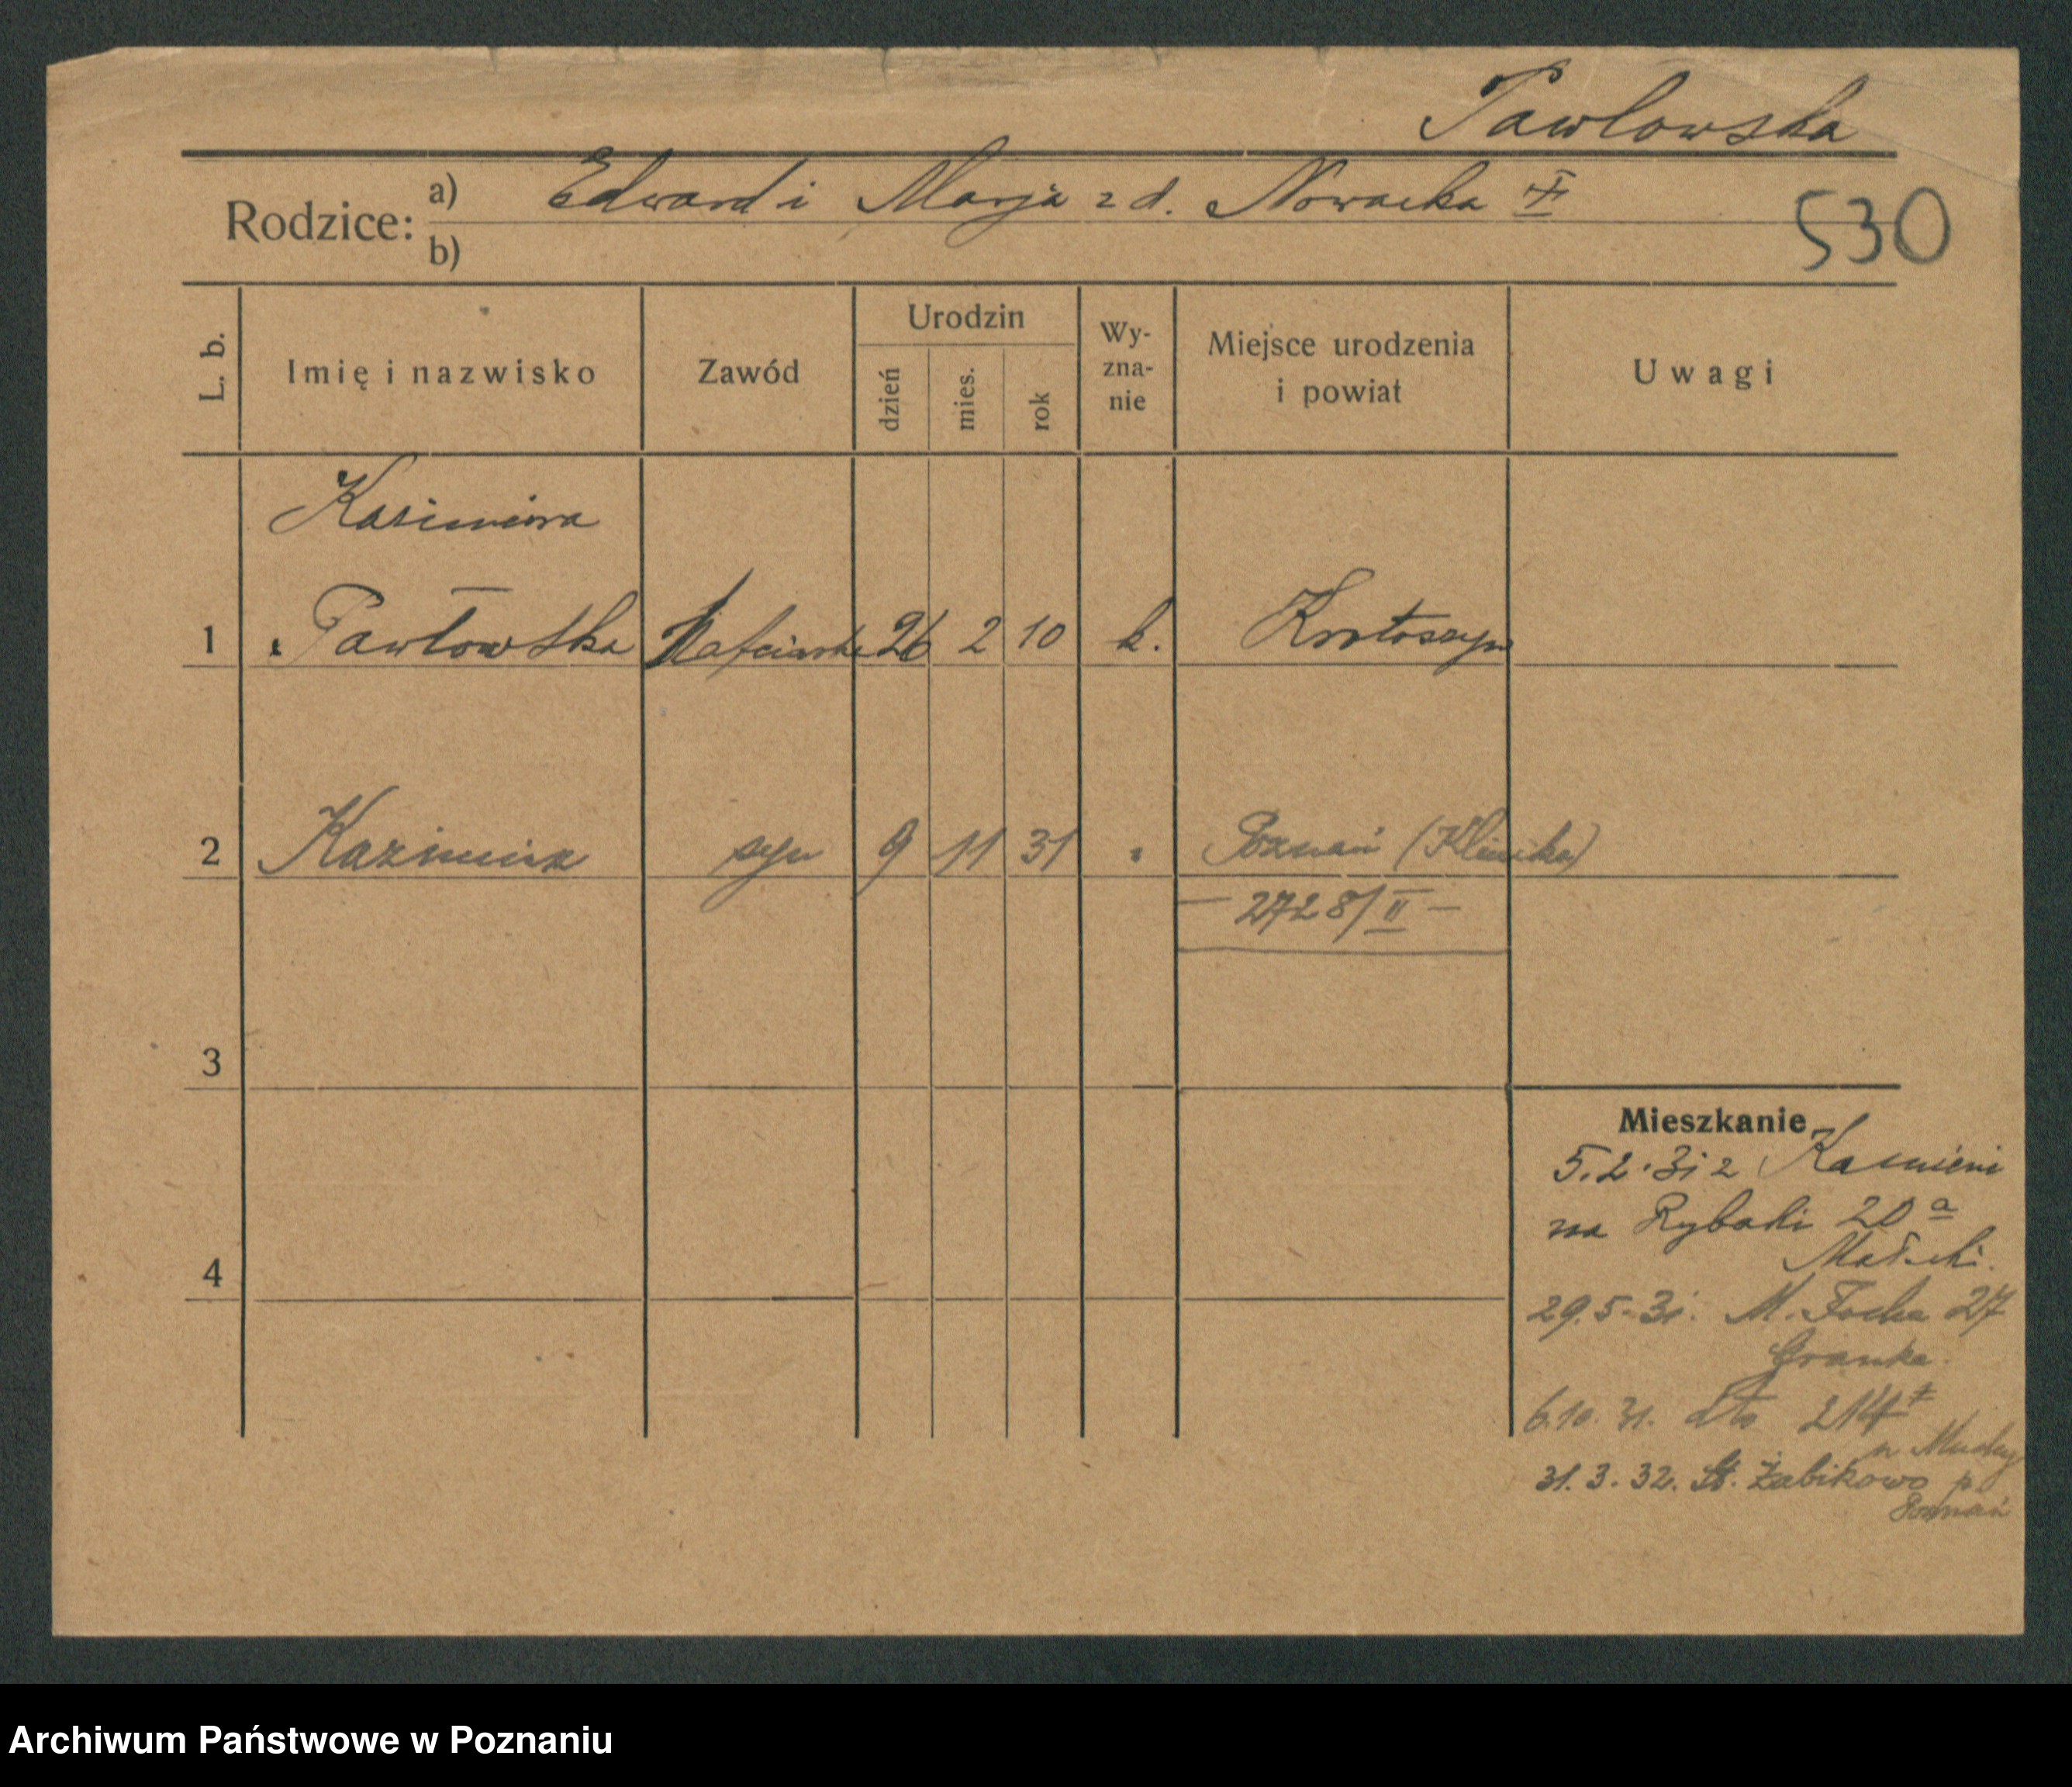 Pawlowska
Rodzice: a) Edward i Marja z d. Nowacka
b)
530
L. b.
Imię i nazwisko
Zawód
Urodzin
dzień
mies.
rok
Wy-
zna-
nie
Miejsce urodzenia
i powiat
Uwagi
Kazimiera
1 Pawłowska Hafciarka 26 2 10 k. Krotoszyn
2 Kazimierz syn 9 11 31 " Poznań (Klinika)
— 2728/II —
3
4
Mieszkanie
5.2.31 z Kamieni
na Rybaki 20 a
29.5.31. M. Focha 27
6.10.31. dto
31.3.32. St. Żabikowo p
Poznań
Archiwum Państwowe w Poznaniu